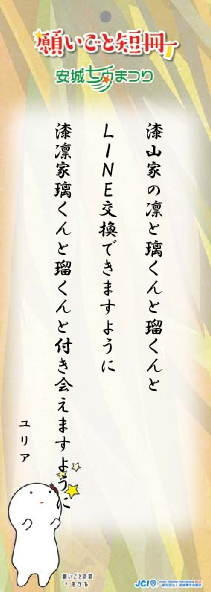 願いごと短冊
安城七夕まつり
漆山家の凛と璃くんと瑠くんと
LINE交換できますように
漆凛家璃くんと瑠くんと付き会えますように
ユリア
願いごと短冊
JCI